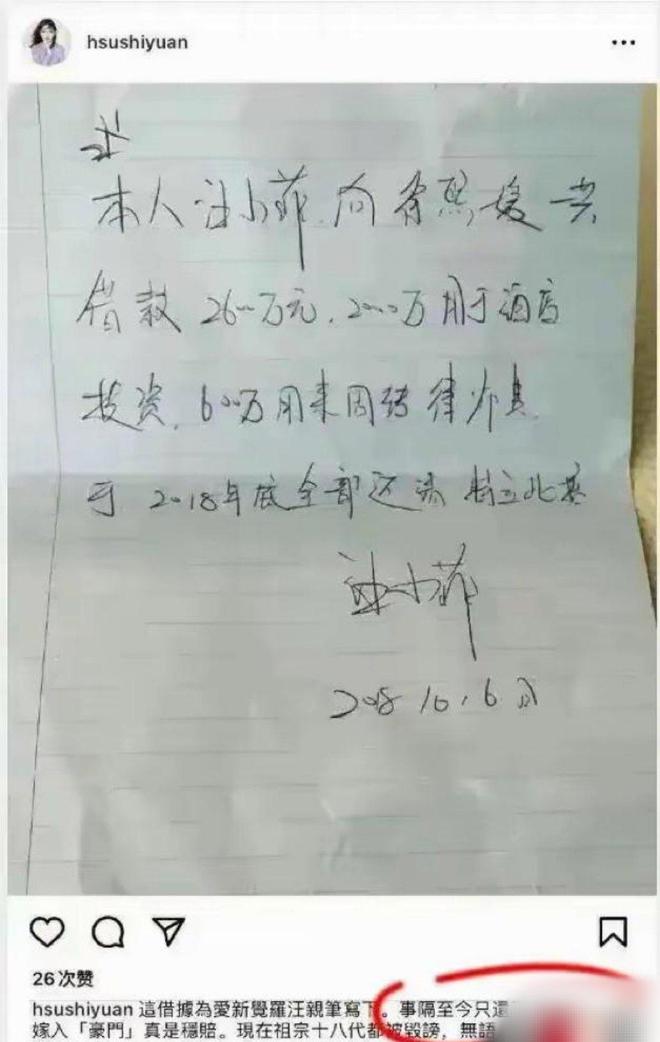 hsushiyuan
本人汪小菲向徐熙媛共
借款2600万元，2000万用于酒店
投资，600万用来周转律师费
于2018年底全部还清 特立此据
汪小菲
2018 10.6日
26次赞
hsushiyuan 這借據為愛新覺羅汪親筆寫下。事隔至今只還
嫁入「豪門」真是穩賠。現在祖宗十八代都被毀謗，無語